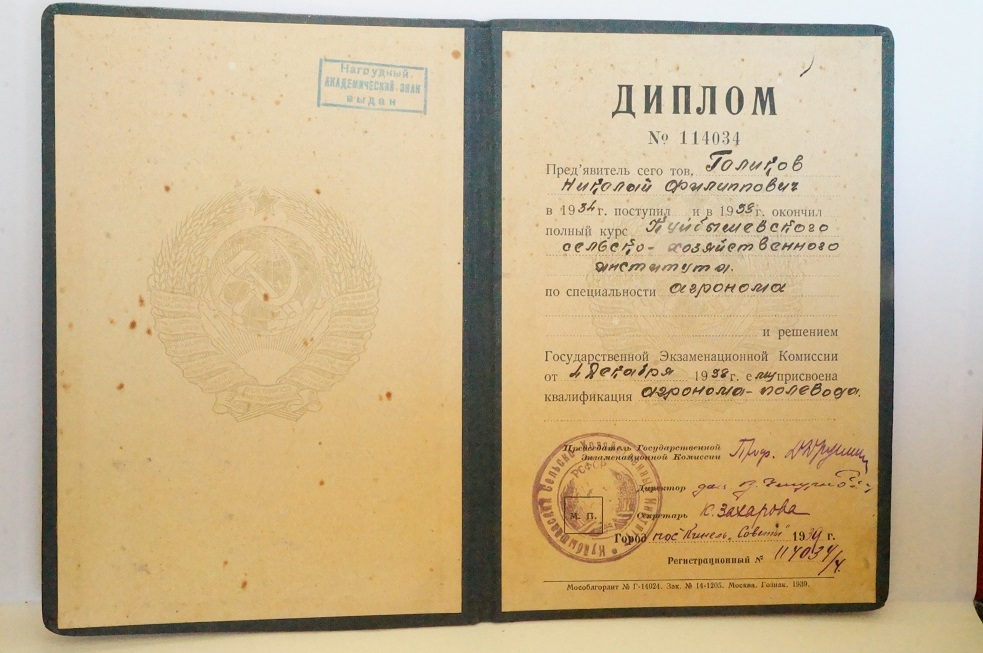 Нагрудный
АКАДЕМИЧЕСКИЙ ЗНАК
выдан
ДИПЛОМ
№ 114034
Пред'явитель сего тов. Голиков
Николай Филиппович
в 1934 г. поступил и в 1938 г. окончил
полный курс Куйбышевского
сельско-хозяйственного
института.
по специальности агронома
и решением
Государственной Экзаменационной Комиссии
от 4 декабря 1938 г. ему присвоена
квалификация агронома-полевода.
Председатель Государственной
Экзаменационной Комиссии Проф.
Директор доц.
М. П.
Секретарь К. Захарова
Город пос. Кинель, Совет 1939 г.
Регистрационный № 114034/4.
Мособлгорлит № Г-14024. Зак. № 14-1205. Москва. Гознак. 1939.
РСФСР